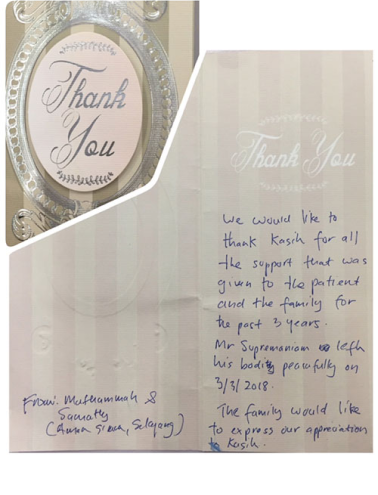 Thank
You
Thank You
We would like to
thank Kasih for all
the support that was
given to the patient
and the family for
the past 3 years.
Mr Supremaniam left
his body peacefully on
3/3/2018.
The family would like
to express our appreciation
to Kasih.
From: Muthammah &
(, Selayang)